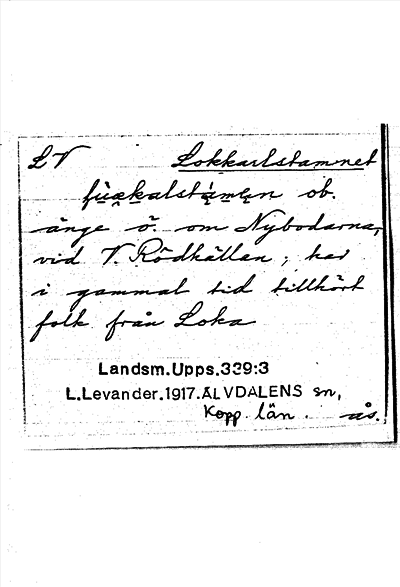 LV Lokkarlstamnet
ob.
änge ö. om Nybodarna,
vid V. Rödkällan; har
i gammal tid tillhört
folk från Loka
Landsm.Upps.339:3
L.Levander.1917.ÄLVDALENS sn,
Kopp. län. ås.